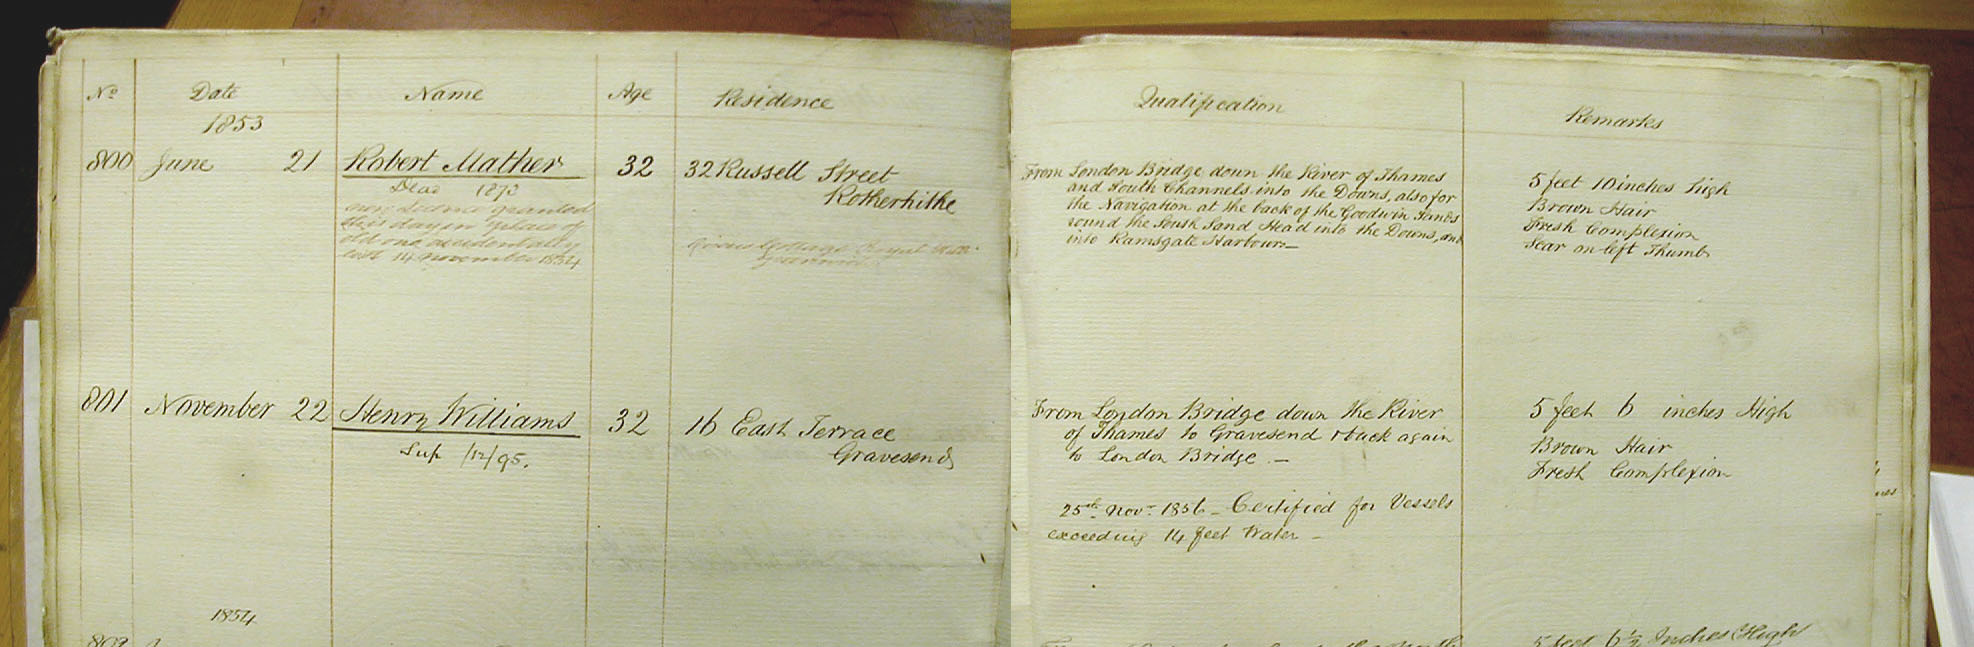 No Date Name Age Residence Qualification Remarks
1853
800 June 21 Robert Mather 32 32 Russell Street
Rotherhithe
Dead 1873
new Licence granted
this day in place of
old one accidentally
lost 14 November 1854
Cottage
From London Bridge down the River of Thames
and South Channels into the Downs, also for
the Navigation at the back of the Goodwin Sands
round the South Sand Head into the Downs, and
into Ramsgate Harbour—
5 feet 10 inches high
Brown Hair
Fresh Complexion
Scar on left Thumb
801 November 22 Henry Williams 32 16 East Terrace
Gravesend
Sup /12/95.
From London Bridge down the River
of Thames to Gravesend & back again
to London Bridge —
25th Novr 1856 — Certified for Vessels
exceeding 14 feet Water —
5 feet 6 inches High
Brown Hair
Fresh Complexion
1854
5 feet 6½ Inches High